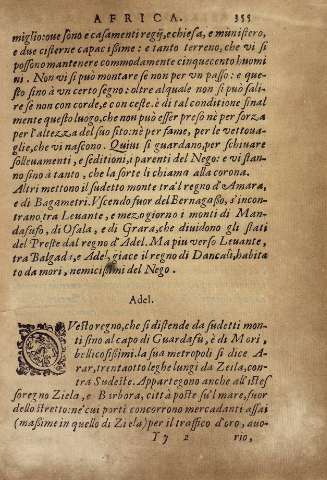 AFRICA. 355
miglio: oue sono e casamenti regij, e chiesa, e munistero,
e due cisterne capacissime: e tanto terreno, che vi si
possono mantenere commodamente cinquecento huomi
ni. Non vi si può montare se non per vn passo: e que-
sto sino à vn certo segno: oltre al quale non si può sali-
re se non con corde, e con ceste. è di tal conditione final
mente questo luogo, che non può esser preso nè per forza
per l'altezza del suo sito: nè per fame, per le vettoua-
glie, che vi nascono. Quiui si guardano, per schiuare
solleuamenti, e seditioni, i parenti del Nego: e vi stan-
no sino à tanto, che la sorte li chiama alla corona.
Altri mettono il sudetto monte trà'l regno d'Amara,
e di Bagametri. Vscendo fuor del Bernagasso, s'incon-
trano, tra Leuante, e mezogiorno i monti di Man-
dafufo, di Osala, e di Grara, che diuidono gli stati
del Preste dal regno d'Adel. Ma piu verso Leuante,
tra Balgada, e Adel, giace il regno di Dancali, habita
to da mori, nemicissimi del Nego.
Adel.
QVesto regno, che si distende da sudetti mon-
ti sino al capo di Guardafù, è di Mori,
bellicosissimi. la sua metropoli si dice A-
rar, trentaotto leghe lungi da Zeila, con-
tra Sudeste. Appartegono anche all'istes
so regno Ziela, e Birbora, città poste su'l mare, fuor
dello stretto: ne' cui porti concorrono mercadanti assai
(massime in quello di Ziela) per il traffico d'oro, auo-
Yy 2 rio,